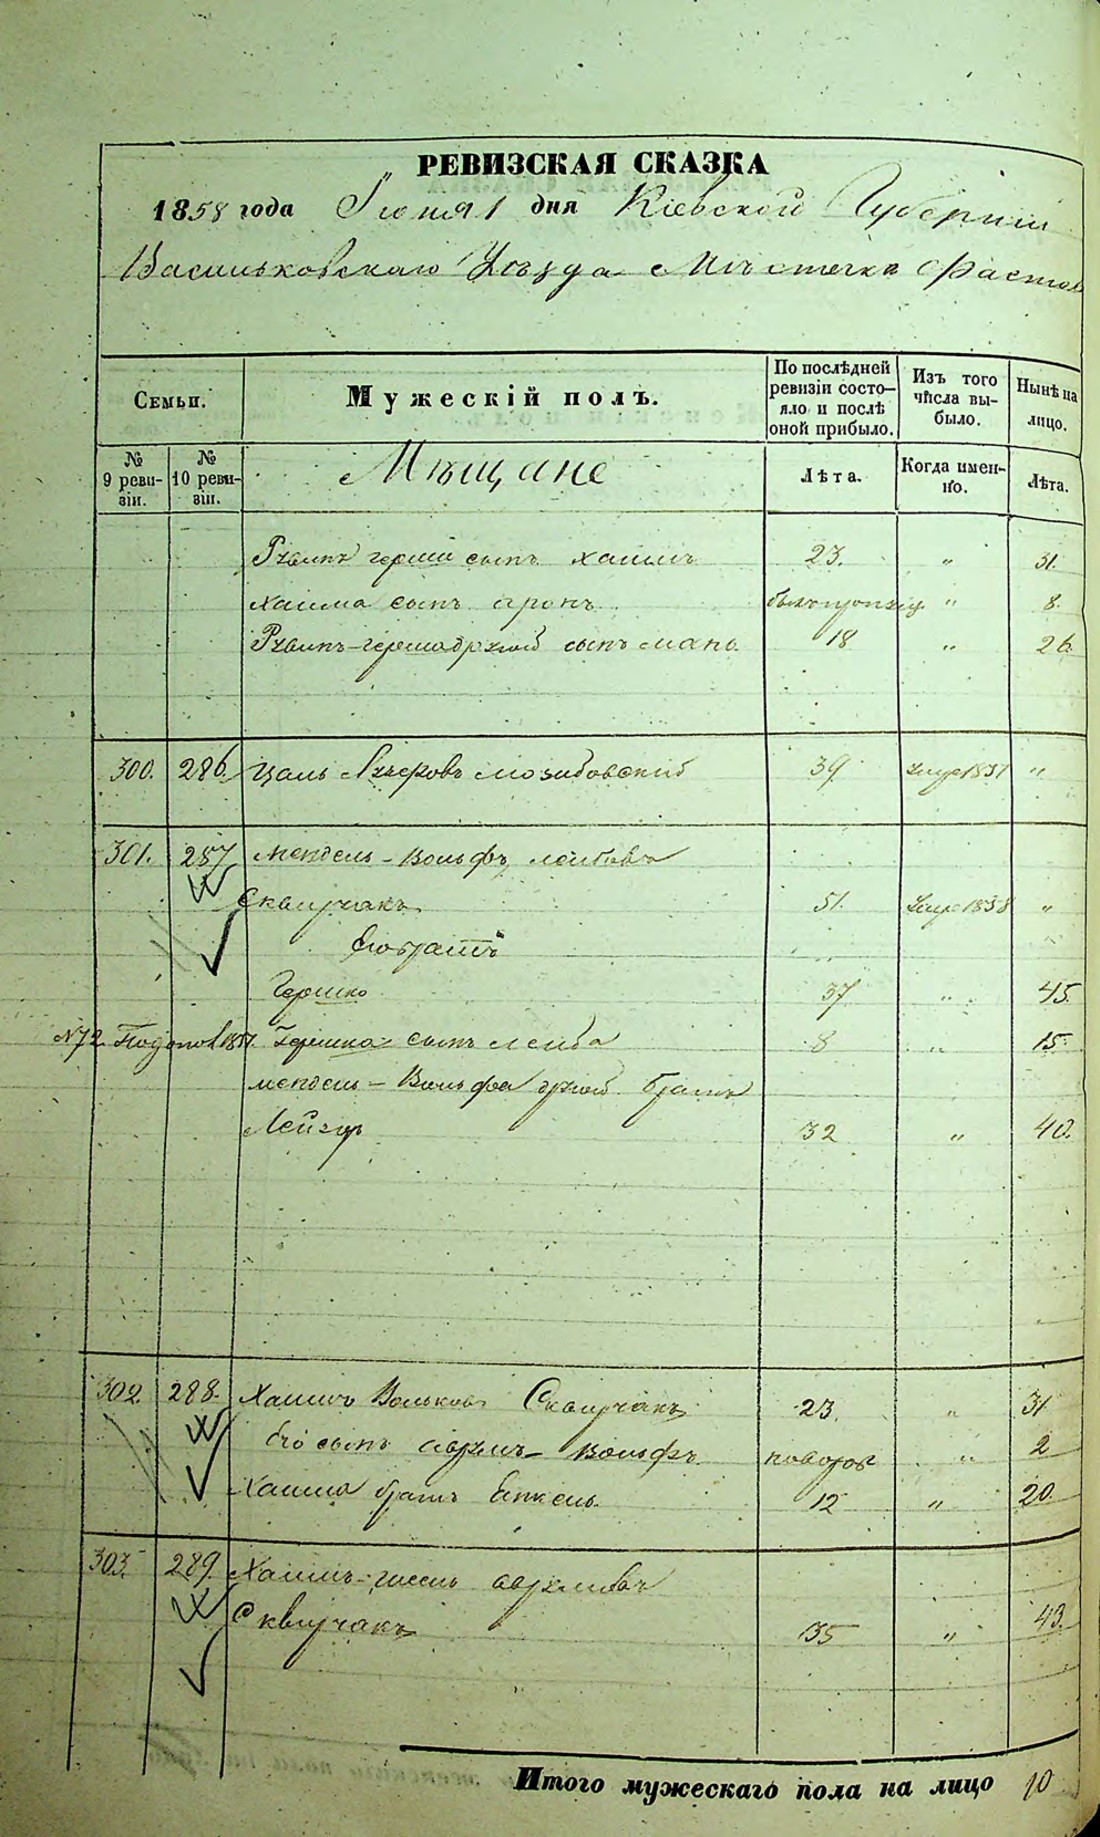 РЕВИЗСКАЯ СКАЗКА
1858 года Іюня 1 дня Кіевской Губерніи
Васильковскаго Уѣзда Мѣстечка Фастов
Семьи. Мужескій полъ. По послѣдней ревизіи состояло и послѣ оной прибыло. Изъ того числа выбыло. Нынѣ на лицо.
№ 9 ревизіи. № 10 ревизіи. Мѣщане Лѣта. Когда именно. Лѣта.
герши сынъ Хаимъ 23. " 31.
Хаима сынъ Аронъ " 8.
сынъ 18 " 26.
300. 286. 39 1851 "
301. 287 Мендель-Вольфъ Лейбовъ
Сквирчакъ 51. 1858 "
Его братъ
Гершко 37 " 45.
N72 1851. Гершка сынъ Лейба 8 " 15.
Мендель-Вольфа другой братъ
Лейзеръ 32 " 40.
302. 288. Хаимъ Вольковъ Сквирчакъ 23. " 31
Его сынъ Аврумъ-Вольфъ новорож " 2
Хаима братъ Янкель 12 " 20.
303. 289. Хаимъ-
Сквирчакъ 35 " 43.
Итого мужескаго пола на лицо 10